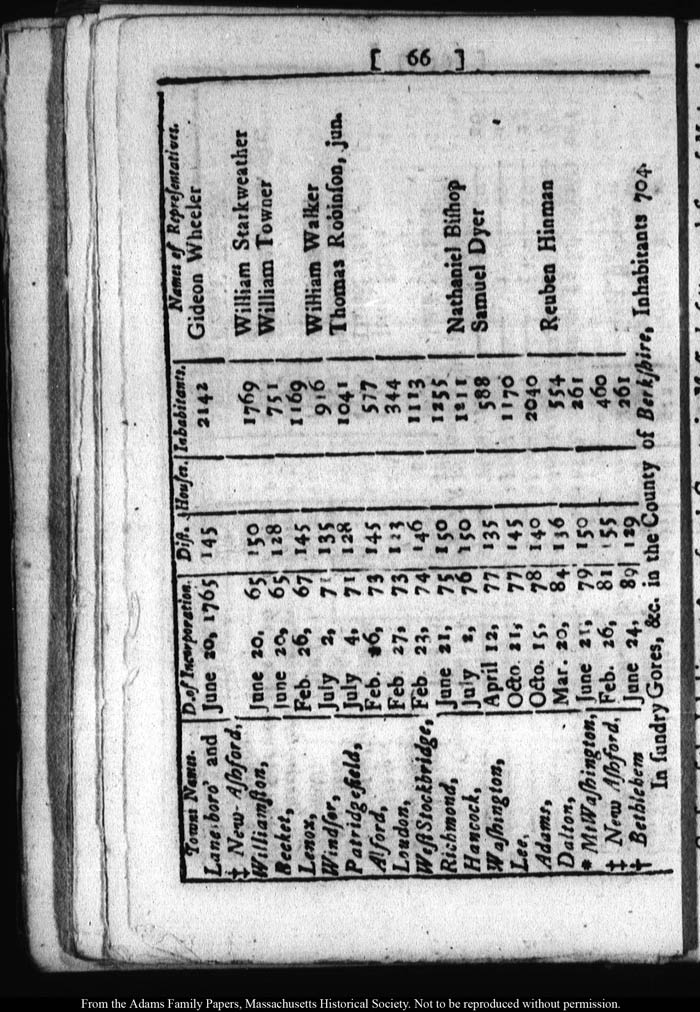 [ 66 ]
Towns Names. D. of Incorporation. Dist. Houses. Inhabitants. Names of Representatives.
Laneſboro' and June 20, 1765 145 2142 Gideon Wheeler
‡ New-Aſhford,
Williamſton, June 20, 65 150 1769 William Starkweather
Becket, June 20, 65 128 751 William Towner
Lenox, Feb. 26, 67 145 1169
Windſor, July 2, 71 135 916 William Walker
Patridgefield, July 4, 71 128 1041 Thomas Robinſon, jun.
Alford, Feb. 16, 73 145 577
Loudon, Feb 27, 73 123 344
Weſt Stockbridge, Feb. 23, 74 146 1113
Richmond, June 21, 75 150 1255
Hancock, July 2, 76 150 1211 Nathaniel Biſhop
Waſhington, April 12, 77 135 588 Samuel Dyer
Lee, Octo. 21, 77 145 1170
Adams, Octo. 15, 78 140 2040
Dalton, Mar. 20, 84 136 554 Reuben Hinman
* Mt Waſhington, June 21, 79 150 261
‡ New Aſhford, Feb. 26, 81 155 460
† Bethlehem June 24, 89 129 261
In ſundry Gores, &c. in the County of Berkſhire, Inhabitants 704.
From the Adams Family Papers, Massachusetts Historical Society. Not to be reproduced without permission.